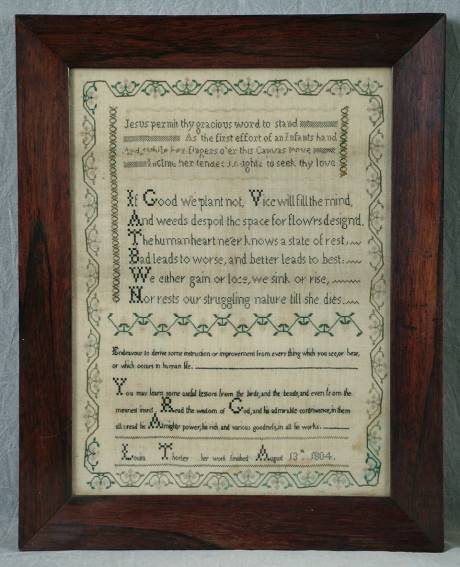 Jesus permit thy gracious word to stand
As the first effort of an Infants hand
And while her fingers o'er this Canvas move
Incline her tender to seek thy love
If Good we plant not, Vice will fill the mind,
And weeds despoil the space for flow'rs design'd.
The human heart ne'er knows a state of rest,
Bad leads to worse, and better leads to best:
We either gain or lose, we sink or rise,
Nor rests our struggling nature till she dies.
Endeavour to derive some instruction or improvement from every thing which you see, or hear,
or which occurs in human life.
You may learn some useful lessons from the birds, and the beasts, and even from the
meanest insect. Read the wisdom of God, and his admirable contrivance, in them
all: read his Almighty power, his rich and various goodness, in all his works.
Louisa her work finished August 13th 1804.